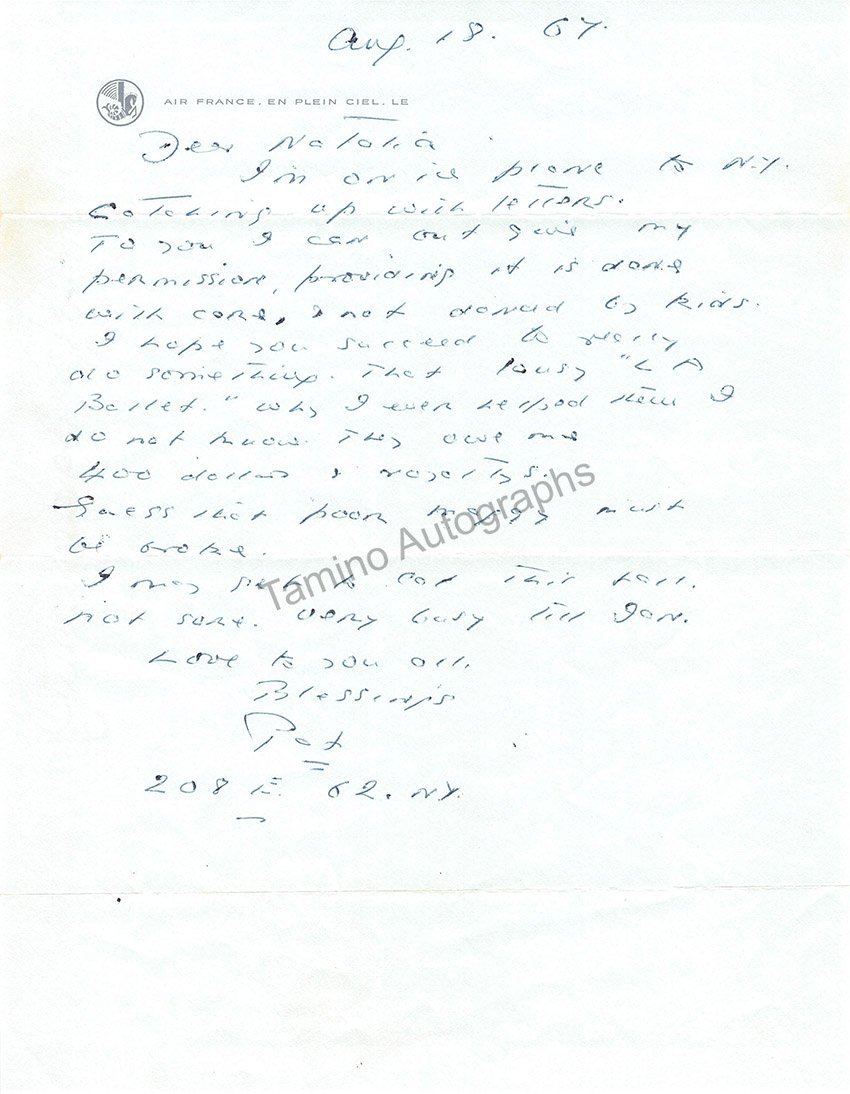 Aug. 18. 67.
AIR FRANCE. EN PLEIN CIEL. LE
Dear Natalia
I'm on the plane to N.Y.
Catching up with letters.
To you I can but give my
permission, providing it is done
with care, & not danced by kids.
I hope you succeed to really
do something. That lousy "LA
Ballet." why I ever helped them I
do not know. They owe me
400 dollars & royaltys.
Guess that poor must
be broke.
I may to Cal this fall.
not sure. very busy till Jan.
Love to you all.
Blessings
Pat
208 E. 62. N.Y.
Tamino Autographs